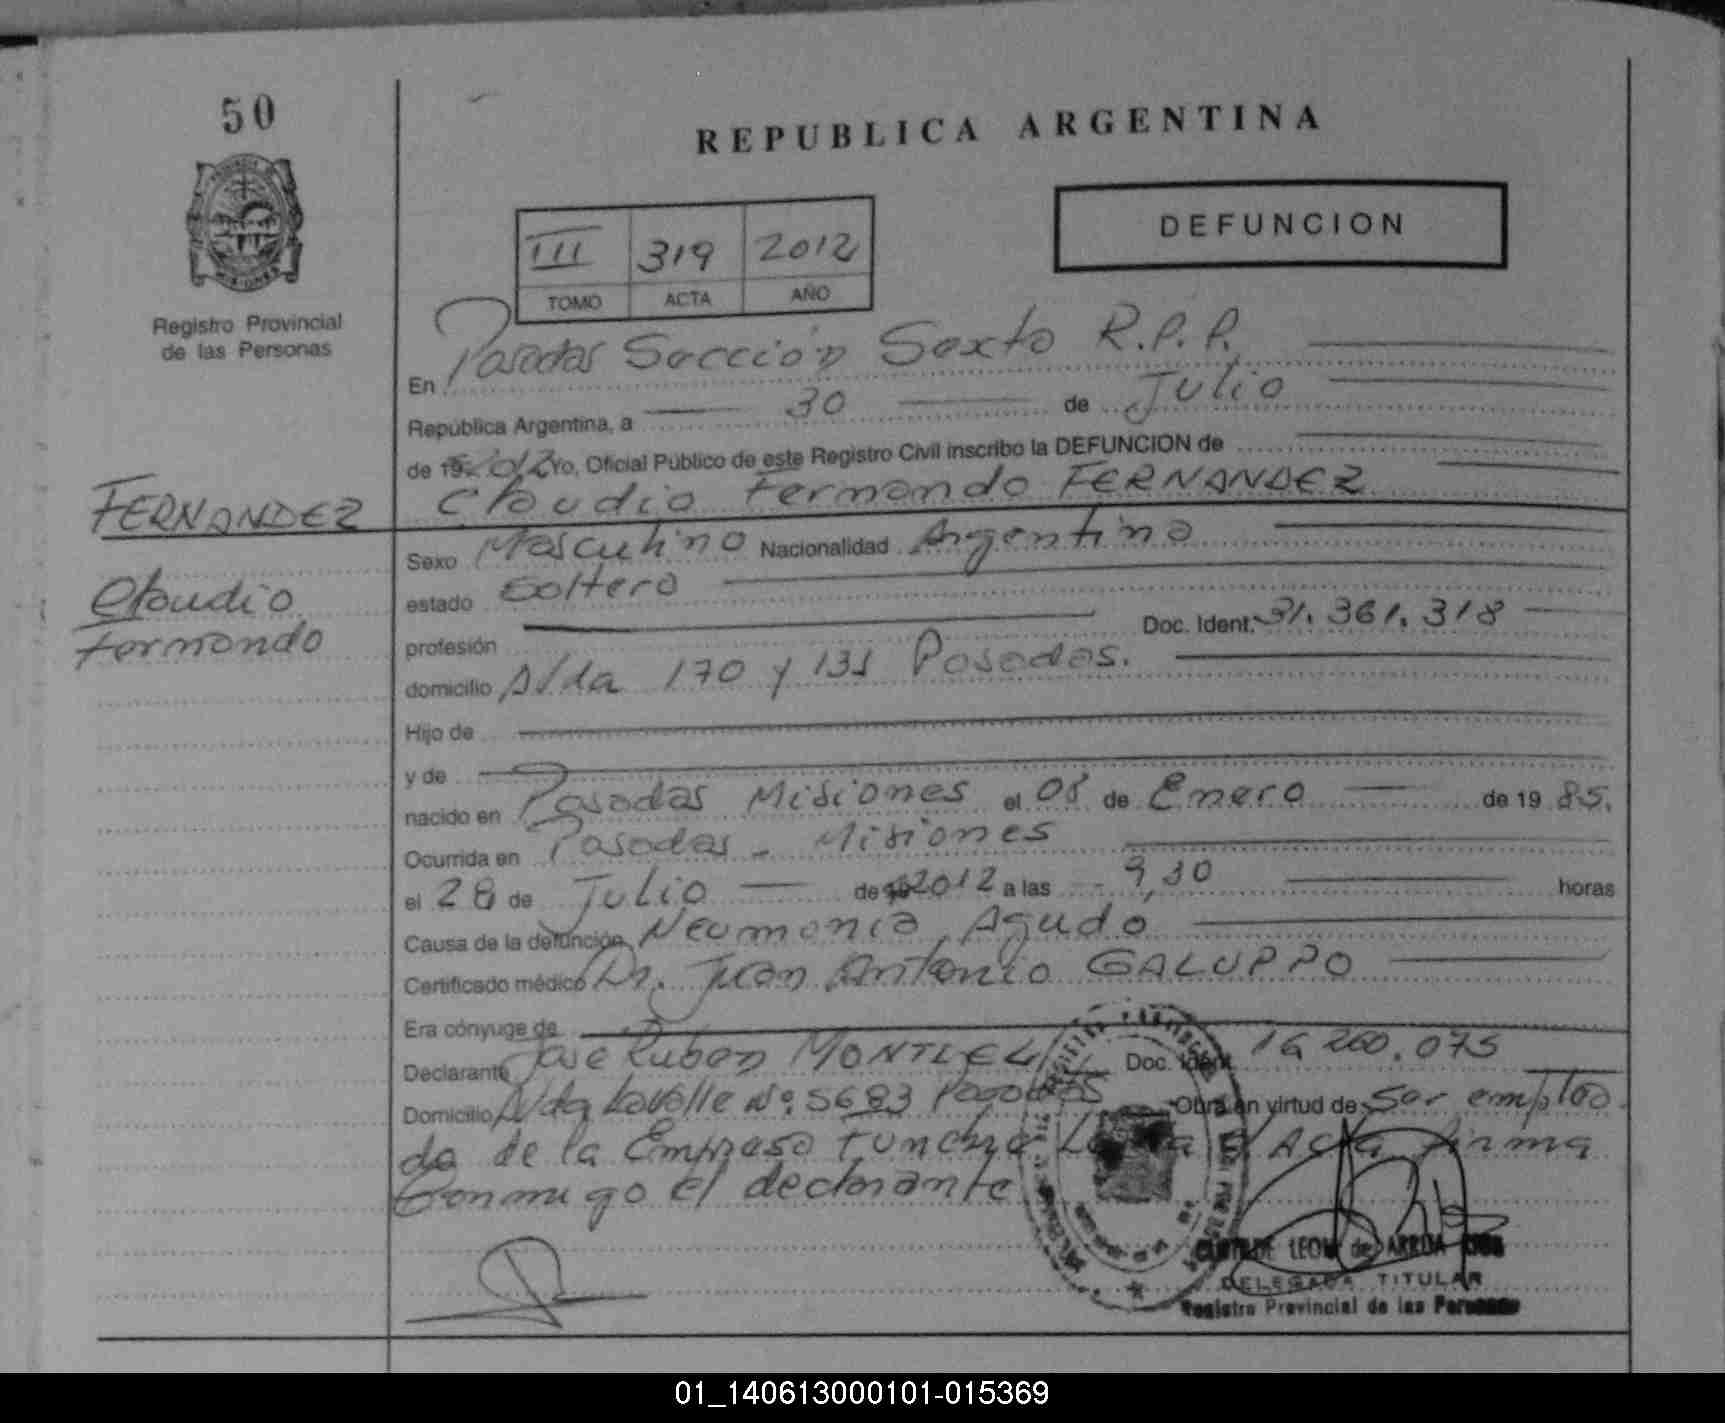 50
REPUBLICA ARGENTINA
DEFUNCION
III 319 2012
TOMO ACTA AÑO
Registro Provincial
de las Personas
En Posadas Sección Sexta R.P.P.
República Argentina, a 30 de Julio
de 2012 Yo, Oficial Público de este Registro Civil inscribo la DEFUNCION de
FERNANDEZ Claudio Fernando FERNANDEZ
Sexo Masculino Nacionalidad Argentina
Claudio
estado Soltero
Fernando
profesión Doc. Ident. 31.361.318
domicilio Avda 170 y 131 Posadas.
Hijo de
y de
nacido en Posadas Misiones el 08 de Enero de 19 85.
Ocurrida en Posadas - Misiones
el 28 de Julio de 2012 a las 9,30 horas
Causa de la defunción Neumonia Aguda
Certificado médico Dr. Juan Antonio GALUPPO
Era cónyuge de
Declarante Jose Ruben MONTIEL Doc. Ident. 16 260.075
Domicilio Avda Lavalle Nº 5683 Posadas Obra en virtud de Ser emplea
do de la Empresa Funebre Acta firma
Conmigo el declarante
LEON de
DELEGADA TITULAR
Registro Provincial de las Personas
01_140613000101-015369